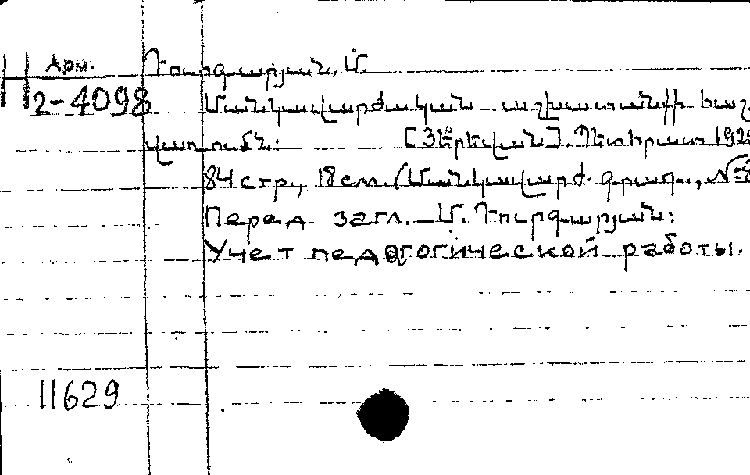 Арм.
Դուրգարյան, Մ.
Н
2-4098
Մանկավարժական աշխատանքի հաշ
վառումն:
[Յերեվան]. Պետհրատ 192
84 стр., 18 см. (Մանկավարժ. գրադ., №
Перед загл. Մ. Դուրգարյան:
Учет педагогической работы.
11629